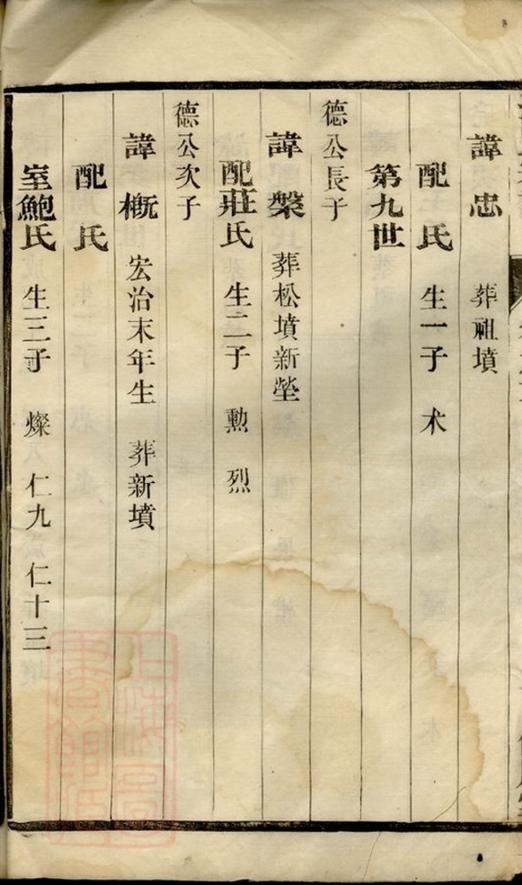 諱忠 葬祖墳
配氏 生一子 术
第九世
德公長子
諱槃 葬松墳新塋
配莊氏 生二子 勲 烈
德公次子
諱槪 宏治末年生 葬新墳
配氏
室鮑氏 生三子 燦 仁九 仁十三